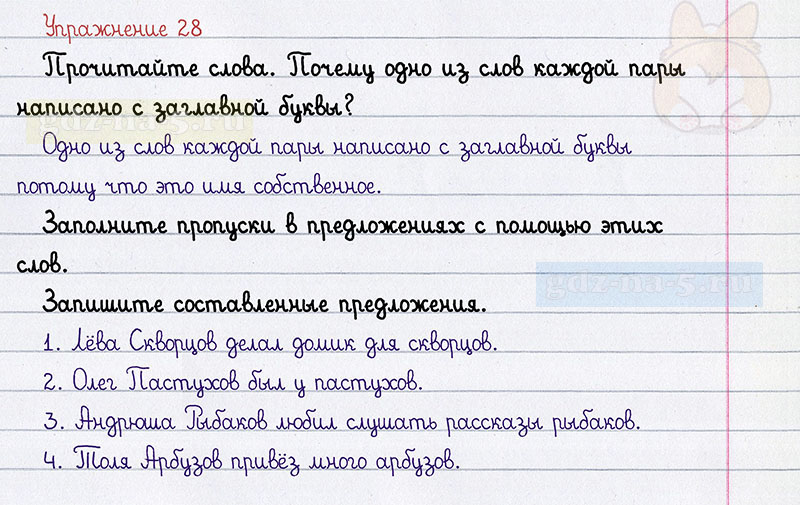 Упражнение 28
Прочитайте слова. Почему одно из слов каждой пары
написано с заглавной буквы?
gdz-na-5.ru
Одно из слов каждой пары написано с заглавной буквы
потому что это имя собственное.
Заполните пропуски в предложениях с помощью этих
слов.
gdz-na-5.ru
Запишите составленные предложения.
1. Лёва Скворцов делал домик для скворцов.
2. Олег Пастухов был у пастухов.
3. Андрюша Рыбаков любил слушать рассказы рыбаков.
4. Толя Арбузов привёз много арбузов.